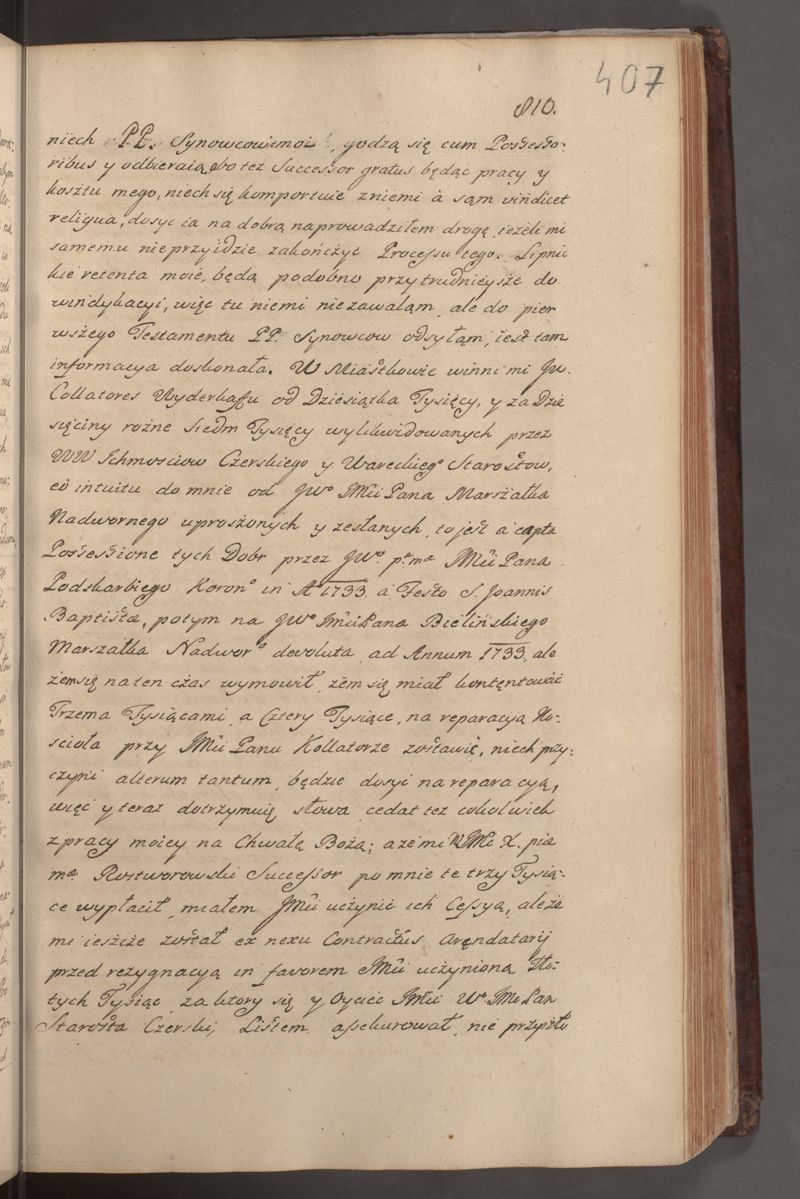 407
810.
niech PP. Synowcowie moi, godzą się cum Possesso-
ribus y odbieraią, bo też Successor gratus będąc pracy y
kosztu mego, niech się komportuie z niemi à sąm vindicet
religua, dosyc ia na dobrą naprowadziłem drogę, ieżeli mi
samemu nieprzyidzie zakończyć Processu tego. Lipnic
kie retenta moie, będą podobno przytrudnieysze do
windykacyi, więc tu niemi niezawaląm, ale do pier
wszego Testamentu PP. Synowcow odsyłąm, iest tam
informacya doskonała. W Miastkowie winni mi JW.
Collatores Wyderkaffu od Dziesiątka Tysięcy, y za Dzie
sięciny rożne siedm Tysięcy wylikwidowanych przez
WW Ichmosciow Czerskiego y Wareckieg° Starostow,
eò intuitu do mnie od JW° JMci Pana Marszałka
Nadwornego uproszonych y zesłanych, to jest a capta
Possessione tych Dobr przez JW° p° m° JMci Pana
Podskarbiego Koron° in A° 1733 a Festo S. Joannis
Baptistæ, potym na JW° JMci Pana Bielińskiego
Marszałka Nadwor° devoluta ad Annum 1733, ale
żem się na ten czas wymowił, żem się miał kontentować
Trzema Tysiącami, a Cztery Tysiące, na reparacyą Ko-
scioła przy JMci Panu Kollatorze zostawić, niech przy-
czyni alterum tantum, będzie dosyć na reparacyą,
więc y teraz dotrzymuię słowa, cedat też cokolwiek
z pracy moiey na Chwałę Bożą; a że mi JMci X. piæ
mæ Rostworowski Successor po mnie te trzy Tysią-
ce wypłacił, miałem JMci uczynić ich Cessyą, ale że
mi ieszcze został ex nexu Contractûs Arędatorij
przed rezygnacyą in favorem JMci uczynioną Zło-
tych Tysiąc, za ktory się y Oyciec JMci W° JMc Pan
Starosta Czerski, Listem assekurował, nie przyszło